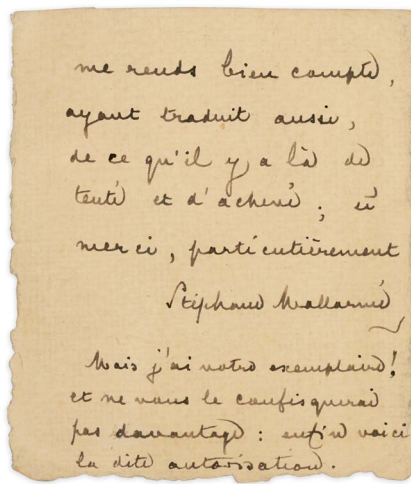 me rends bien compte,
ayant traduit aussi,
de ce qu'il y a là de
tenté et d'achevé ; et
merci, particulièrement
Stéphane Mallarmé
Mais j'ai votre exemplaire !
et ne vous le confisquerai
pas davantage : enfin voici
la dite autorisation.